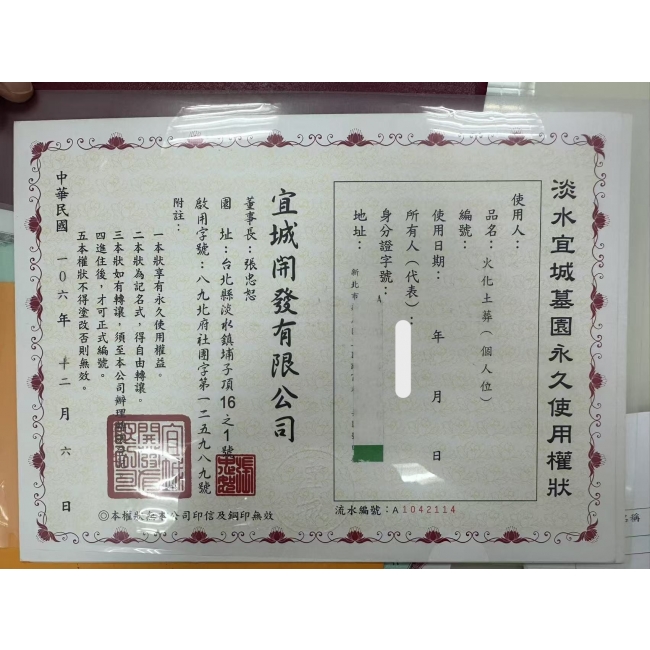 淡水宜城墓園永久使用權狀
使用人：
品名：火化土葬（個人位）
編號：
使用日期：　年　月　日
所有人（代表）：
身分證字號：A
地址：新北市
流水編號：A1042114
宜城開發有限公司
董事長：張忠恕
園　址：台北縣淡水鎮埔子頂16之1號
啟用字號：八九北府社團字第一二五九八九號
附註：
一本狀享有永久使用權益。
二本狀為記名式，得自由轉讓。
三本狀如有轉讓，須至本公司辦理
四進住後，才可正式編號。
五本權狀不得塗改否則無效。
中華民國一０六年十二月六日
◎本權狀無本公司印信及鋼印無效
名稱